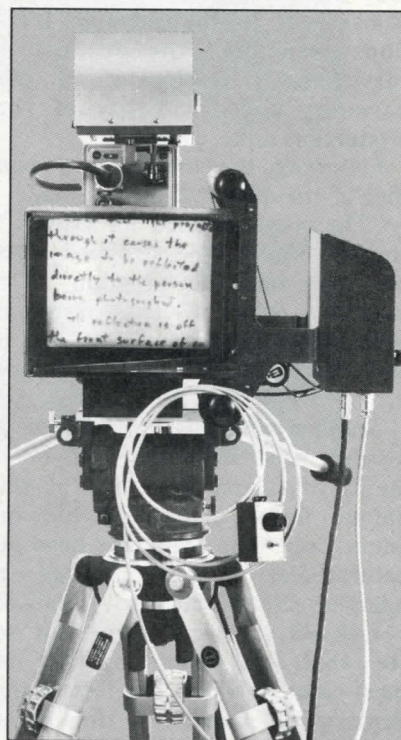 light project
through it causes the
image to be reflected
directly to the person
being photographed.
The reflection is off
the front surface of